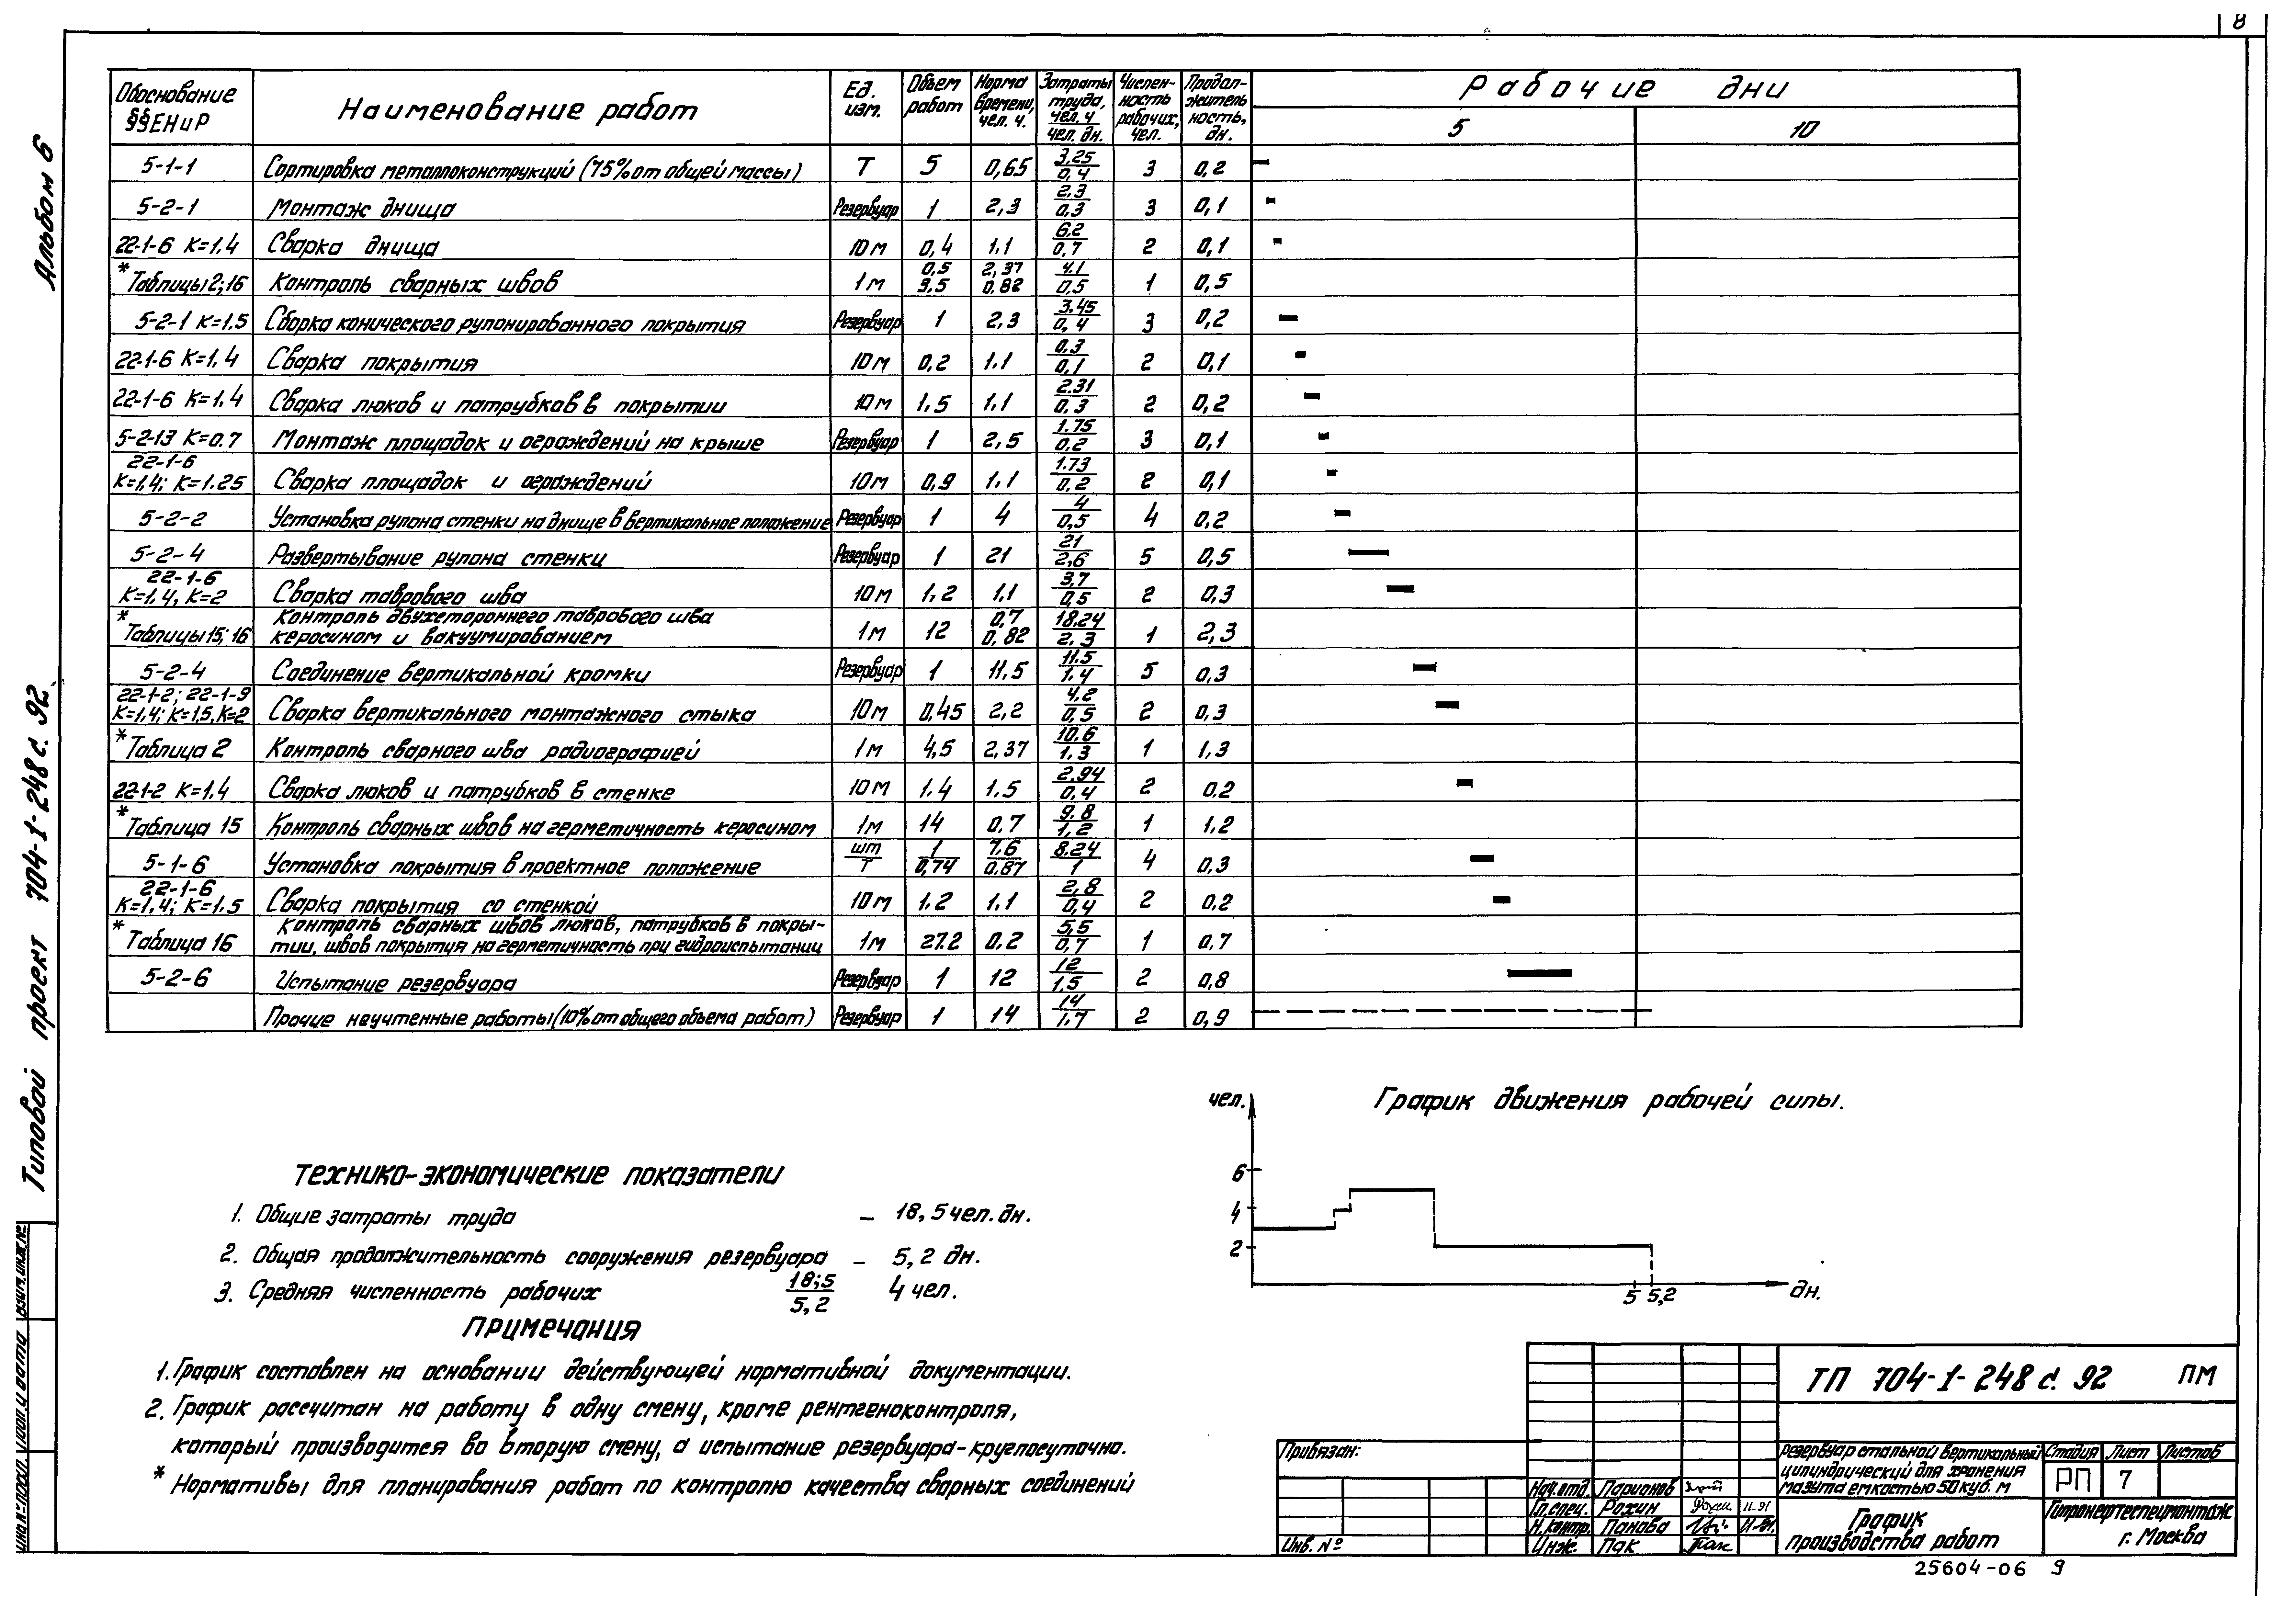 8
Альбом 6
Типовой проект 704-1-248 с. 92
Обоснование §§ЕНиР | Наименование работ | Ед. изм. | Объем работ | Норма времени, чел. ч. | Затраты труда, чел. ч / чел. дн. | Числен-ность рабочих, чел. | Продол-житель ность, дн. | Рабочие дни
5 | 10
5-1-1 | Сортировка металлоконструкций (75% от общей массы) | Т | 5 | 0,65 | 3,25 / 0,4 | 3 | 0,2
5-2-1 | Монтаж днища | Резервуар | 1 | 2,3 | 2,3 / 0,3 | 3 | 0,1
22-1-6 К=1,4 | Сварка днища | 10м | 0,4 | 1,1 | 6,2 / 0,7 | 2 | 0,1
* Таблицы 2;16 | Контроль сварных швов | 1м | 0,5 3,5 | 2,37 0,82 | 4,1 / 0,5 | 1 | 0,5
5-2-1 К=1,5 | Сборка конического рулонированного покрытия | Резервуар | 1 | 2,3 | 3,45 / 0,4 | 3 | 0,2
22-1-6 К=1,4 | Сварка покрытия | 10м | 0,2 | 1,1 | 0,3 / 0,1 | 2 | 0,1
22-1-6 К=1,4 | Сварка люков и патрубков в покрытии | 10м | 1,5 | 1,1 | 2.31 / 0,3 | 2 | 0,2
5-2-13 К=0.7 | Монтаж площадок и ограждений на крыше | Резервуар | 1 | 2,5 | 1.75 / 0,2 | 3 | 0,1
22-1-6 К=1,4; К=1.25 | Сварка площадок и ограждений | 10м | 0,9 | 1,1 | 1.73 / 0,2 | 2 | 0,1
5-2-2 | Установка рулона стенки на днище в вертикальное положение | Резервуар | 1 | 4 | 4 / 0,5 | 4 | 0,2
5-2-4 | Развертывание рулона стенки | Резервуар | 1 | 21 | 21 / 2,6 | 5 | 0,5
22-1-6 К=1.4, К=2 | Сварка таврового шва | 10м | 1,2 | 1,1 | 3,7 / 0,5 | 2 | 0,3
* Таблицы 15; 16 | Контроль двухстороннего таврового шва керосином и вакуумированием | 1м | 12 | 0,7 0,82 | 18.24 / 2,3 | 1 | 2,3
5-2-4 | Соединение вертикальной кромки | Резервуар | 1 | 11,5 | 11.5 / 1.4 | 5 | 0,3
22-1-2; 22-1-9 К=1,4; К=1,5, К=2 | Сварка вертикального монтажного стыка | 10м | 0,45 | 2,2 | 4,2 / 0,5 | 2 | 0,3
* Таблица 2 | Контроль сварного шва радиографией | 1м | 4,5 | 2,37 | 10,6 / 1,3 | 1 | 1,3
22-1-2 К=1,4 | Сварка люков и патрубков в стенке | 10м | 1,4 | 1,5 | 2,94 / 0,4 | 2 | 0.2
* Таблица 15 | Контроль сварных швов на герметичность керосином | 1м | 14 | 0,7 | 9,8 / 1,2 | 1 | 1,2
5-1-6 | Установка покрытия в проектное положение | шт / Т | 1 / 0,74 | 7.6 / 0,87 | 8.24 / 1 | 4 | 0,3
22-1-6 К=1,4; К=1.5 | Сварка покрытия со стенкой | 10м | 1.2 | 1,1 | 2,8 / 0,4 | 2 | 0.2
* Таблица 16 | Контроль сварных швов люков, патрубков в покры-тии, швов покрытия на герметичность при гидроиспытании | 1м | 27.2 | 0.2 | 5,5 / 0,7 | 1 | 0,7
5-2-6 | Испытание резервуара | Резервуар | 1 | 12 | 12 / 1.5 | 2 | 0,8
Прочие неучтенные работы (10% от общего объема работ) | Резервуар | 1 | 14 | 14 / 1.7 | 2 | 0,9
График движения рабочей силы.
чел.
6
4
2
5 5,2 дн.
Технико-экономические показатели
1. Общие затраты труда – 18,5 чел. дн.
2. Общая продолжительность сооружения резервуара – 5,2 дн.
3. Средняя численность рабочих 18;5 / 5,2 4 чел.
Примечания
1. График составлен на основании действующей нормативной документации.
2. График рассчитан на работу в одну смену, кроме рентгеноконтроля,
который производится во вторую смену, а испытание резервуара-круглосуточно.
* Нормативы для планирования работ по контролю качества сварных соединений
Привязан:
Инв. №
Нач. отд. Ларионов
Гл. спец. Рохин 11-91
Н. контр. Панова 11-91.
Инж. Пак Пак
ТП 704-1-248 с. 92 ПМ
Резервуар стальной вертикальный цилиндрический для хранения мазута емкостью 50 куб. м
Стадия | Лист | Листов
РП | 7
График производства работ
Гипронефтеспецмонтаж г. Москва
25604-06 9
Инв № подл. Подп. и дата Взам. инж. №